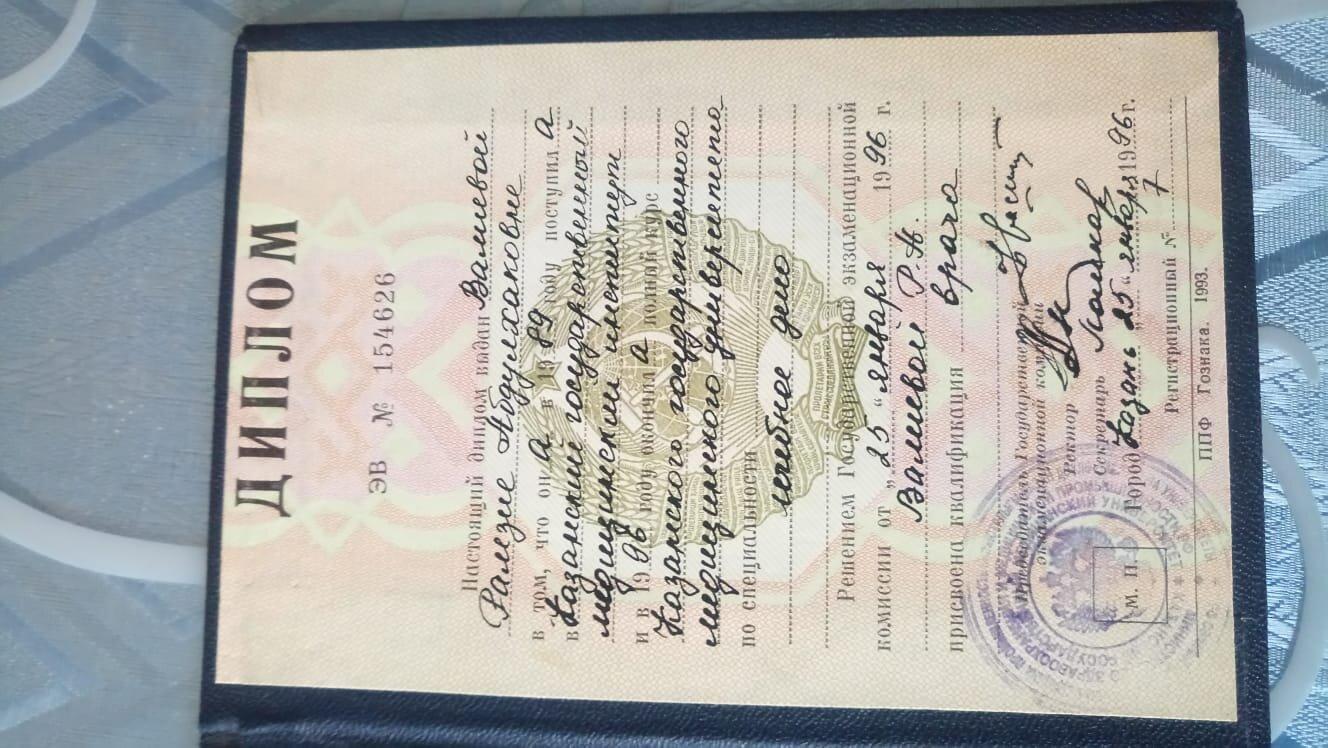 ДИПЛОМ
ЭВ № 154626
Настоящий диплом выдан Валиевой
Рамезие Абдулхаковне
в том, что он а в 19 89 году поступил а
в Казанский государственный
медицинский институт
и в 19 96 году окончил а полный курс
Казанского государственного
медицинского университета
по специальности
лечебное дело
Решением Государственной экзаменационной
комиссии от „ 25 “ января 19 96 г.
Валиевой Р.А.
присвоена квалификация врача
Председатель Государственной
экзаменационной комиссии
Ректор
Секретарь
Город Казань „ 25 “ января 19 96 г.
М. П.
Регистрационный № 7
ППФ Гознака. 1993.